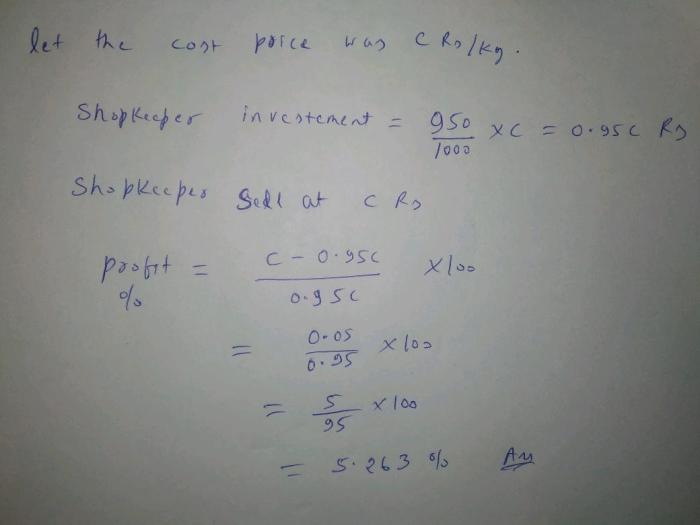 let the cost price was C Rs/Kg.
Shopkeeper investement = 950/1000 × C = 0.95C Rs
Shopkeeper sell at C Rs
profit % = (C - 0.95C)/0.95C × 100
= 0.05/0.95 × 100
= 5/95 × 100
= 5.263 % Ans